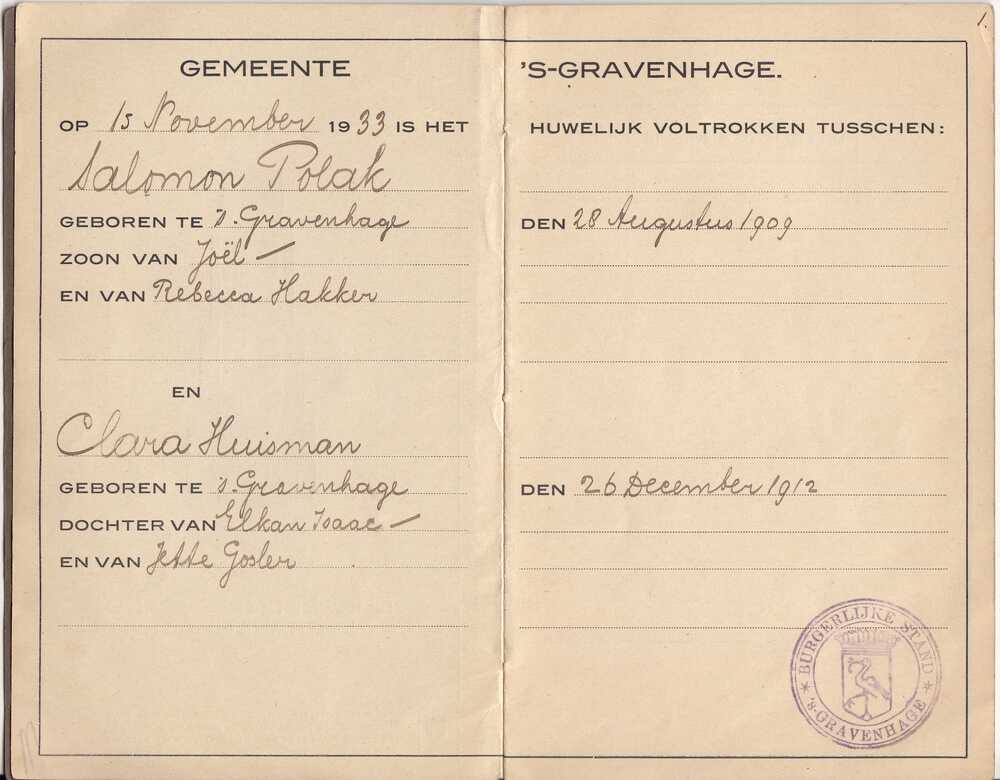 1.
GEMEENTE 'S-GRAVENHAGE.
OP 15 November 1933 IS HET HUWELIJK VOLTROKKEN TUSSCHEN:
Salomon Polak
GEBOREN TE 's. Gravenhage DEN 28 Augustus 1909
ZOON VAN Joël —
EN VAN Rebecca Hakker
EN
Clara Huisman
GEBOREN TE 's. Gravenhage DEN 26 December 1912
DOCHTER VAN Elkan Isaac —
EN VAN Jette Gosler
* BURGERLIJKE STAND *
'S-GRAVENHAGE